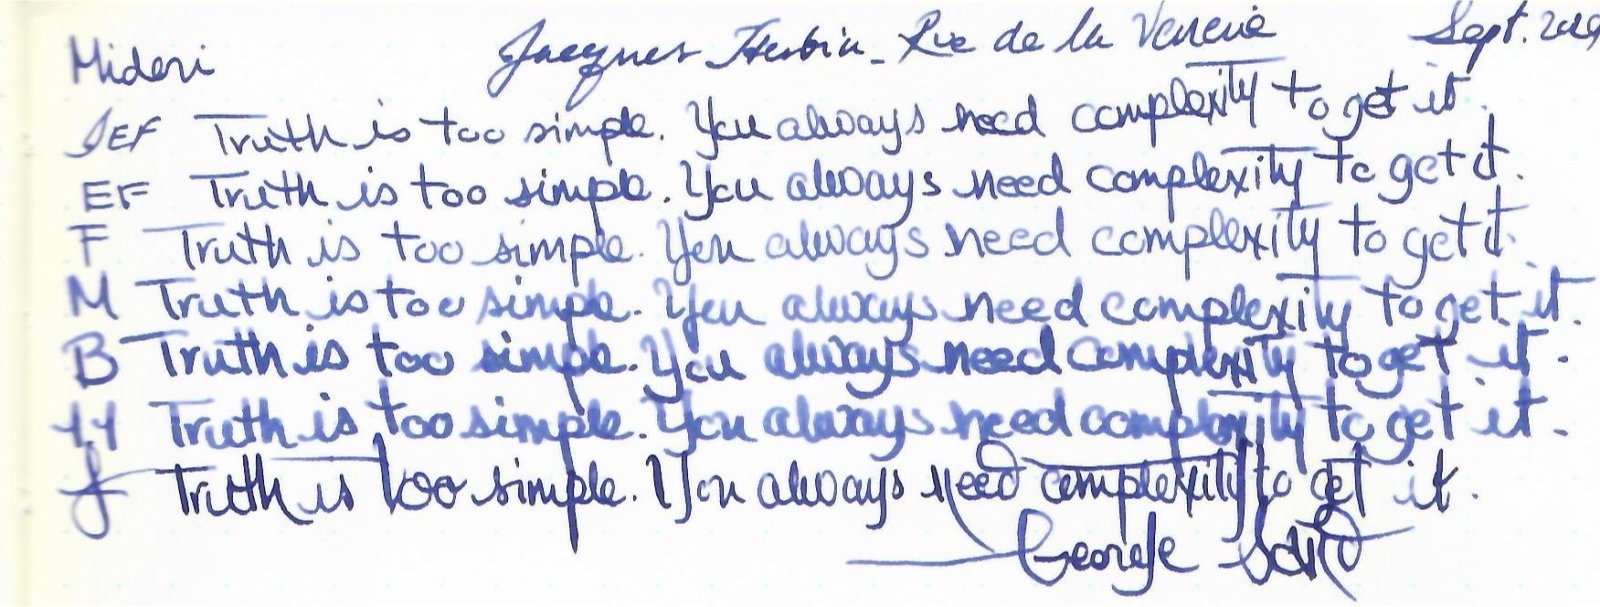 Midori Jacques Herbin - Rue de la Verrerie Sept. 2019
JEF Truth is too simple. You always need complexity to get it.
EF Truth is too simple. You always need complexity to get it.
F Truth is too simple. You always need complexity to get it.
M Truth is too simple. You always need complexity to get it.
B Truth is too simple. You always need complexity to get it.
1.1 Truth is too simple. You always need complexity to get it.
J Truth is too simple. You always need complexity to get it.
George Sand